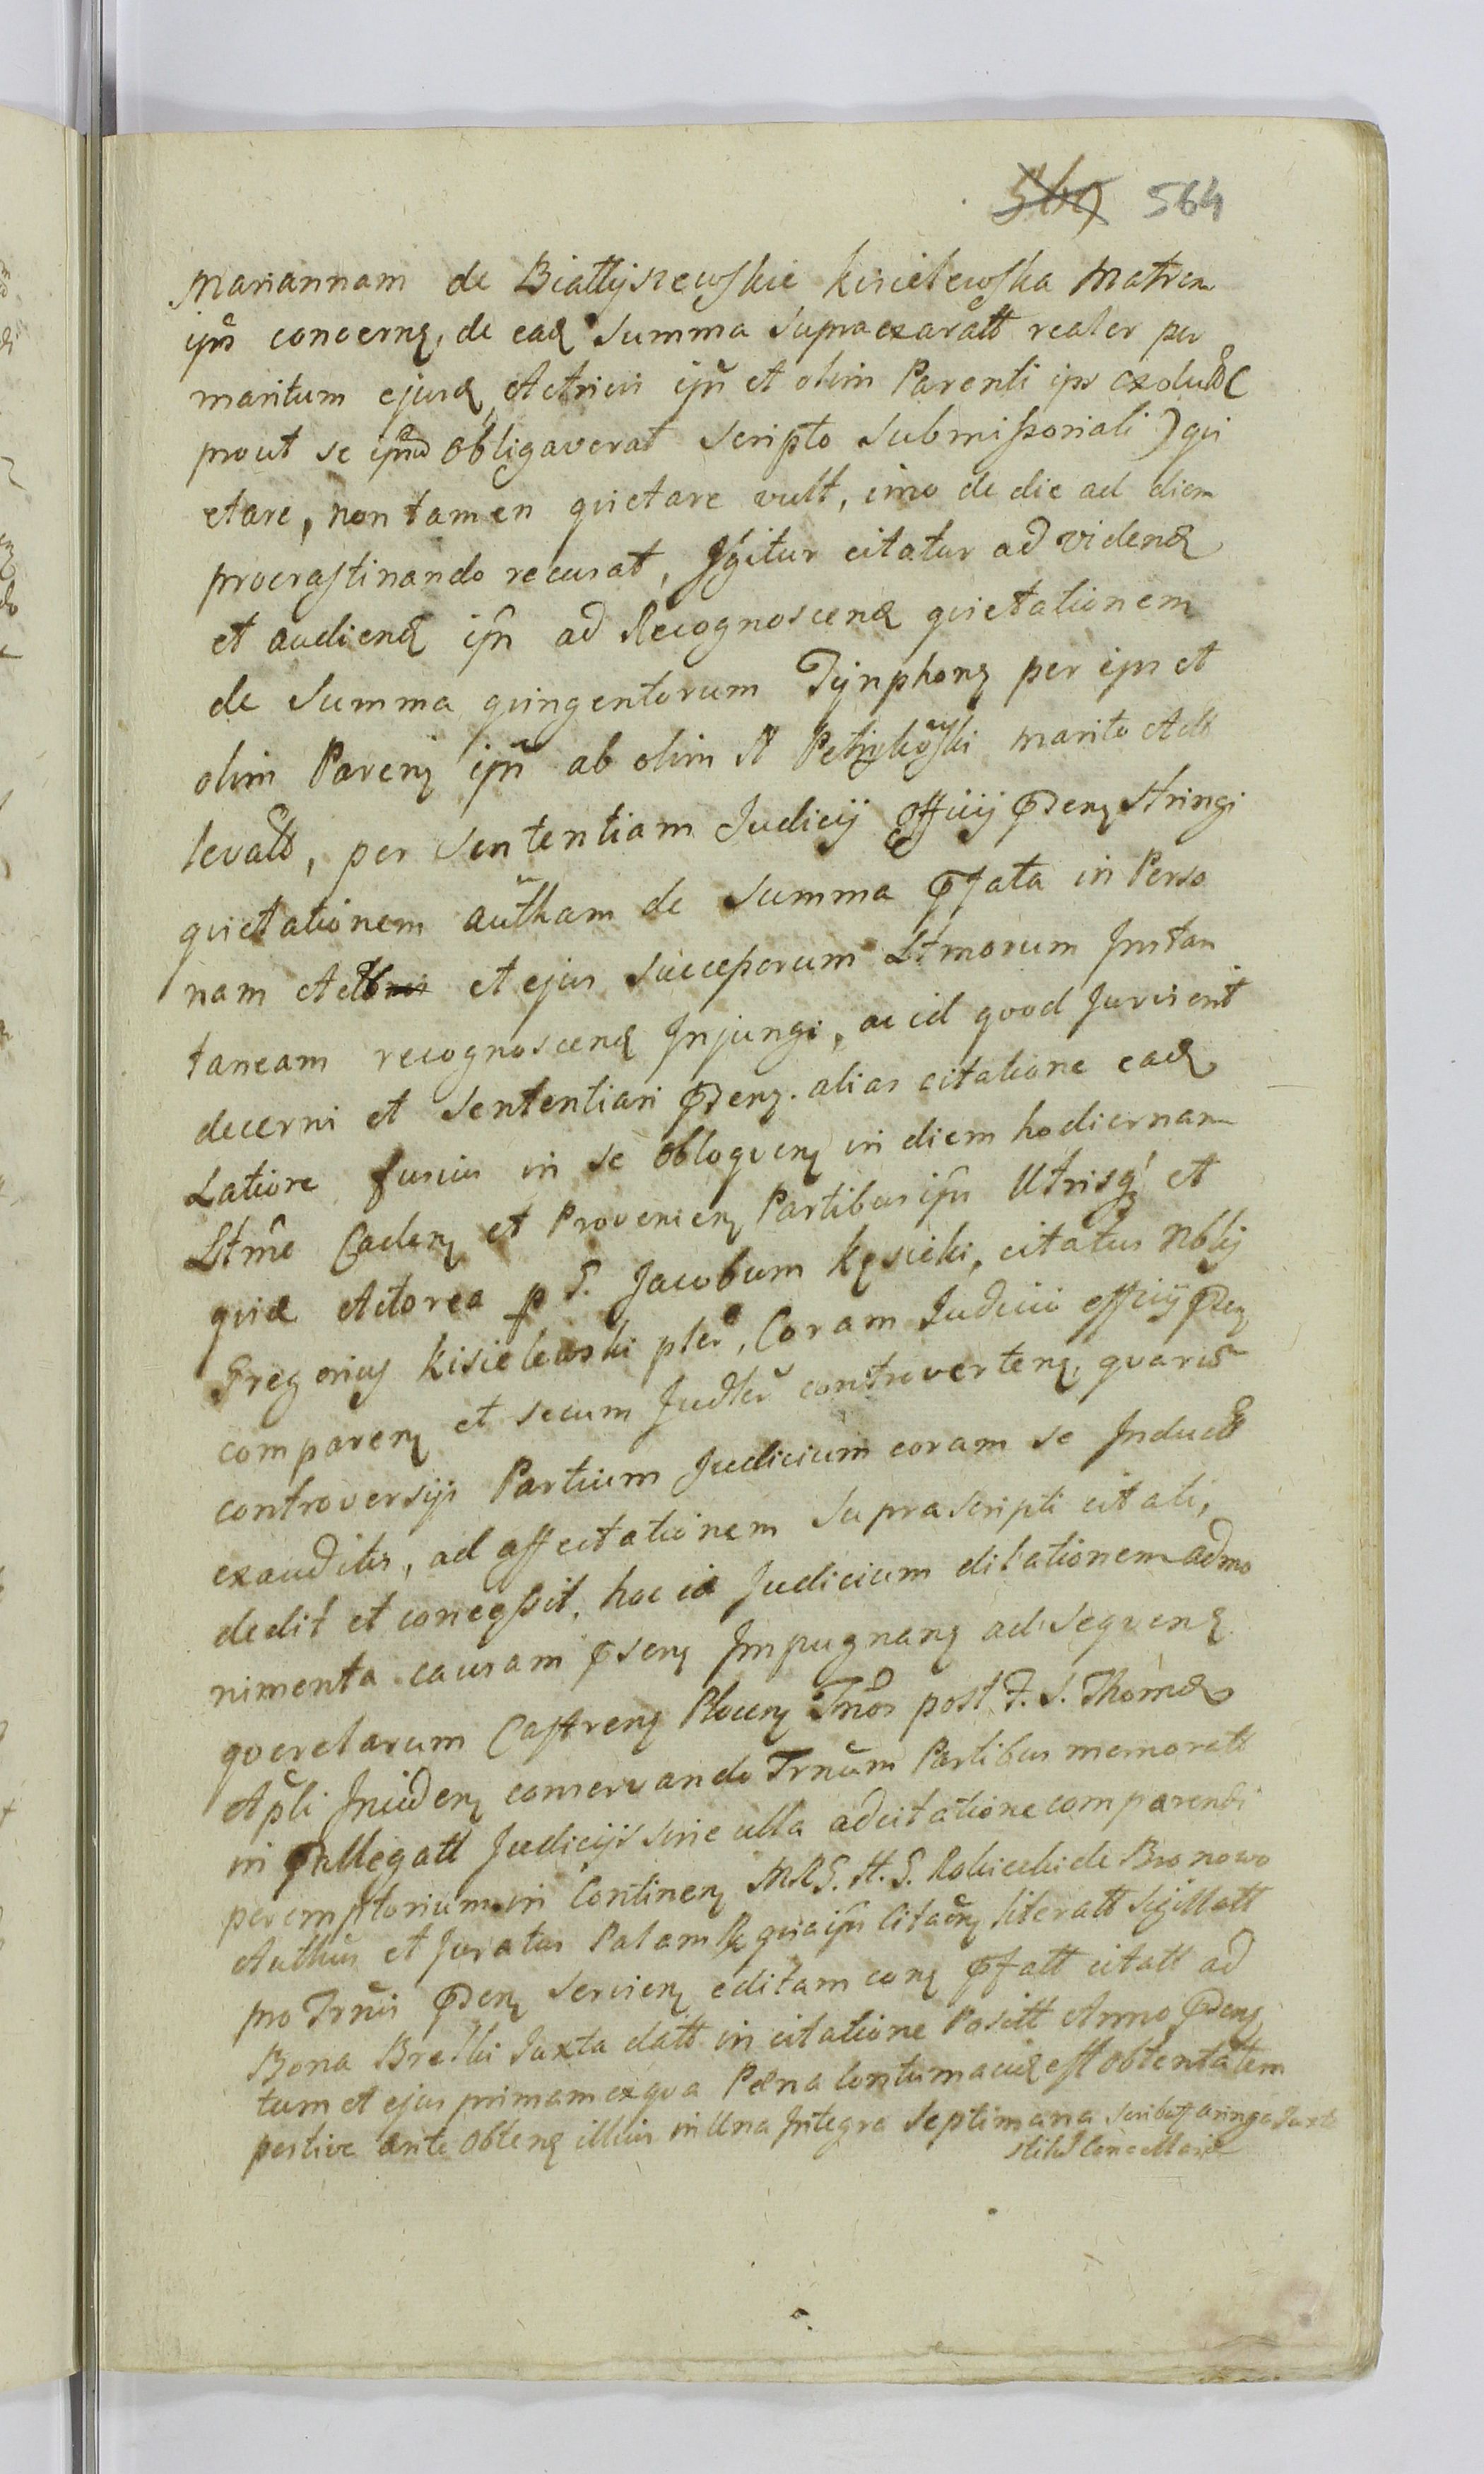 564
Mariannam de Białłyszewskie Kisielewska Matrem
ipsi concernen, de ead summa supraexaratt realer per
maritum ejusd Actrici ipsi et olim Parenti ipsi exolutt (
prout se ipsud obligaverat scripto submissoriali) qvi
etare, non tamen qvietare vult, imo de die ad diem
procrastinando recusat, Igitur citatur ad videnđ
et audienđ ipsi ad Recognoscenđ qvietationem
de summa qvingentorum Tynphonȝ per ipsi et
olim Parenȝ ipsi ab olim N marito Actt
levatt, per sententiam Judicij Officij Psenȝ stringi
qvietationem autham de Summa Pfata in Perso
nam et ejus Successorum Ltmorum Instan
taneam recognoscenđ Injungi, ac id qvod Juris erit
decerni et Sententiari Psenȝ. alias citatione ead
Latiore fusius in se obloqvenȝ in diem hodiernam
Ltme Cadenȝ et Provenienȝ Partibus ipsis Utrisqȝ et
qvidē Actorea p G. Jacobum Kęsicki, citatus Nblis
Gregorius Kisielewski plēr, Coram Judicio officij Psenȝ
comparenȝ et secum Judlēr controvertenȝ, qvarū
controversijs Partium Judicium coram se Inductt
exauditis, ad affectationem suprascripti citati,
dedit et concessit, hoc id Judicium dilationem ad mo
nimenta causam Psenȝ Impugnanȝ ad seqvenđ
qverelarum Castrenȝ Plocenȝ Trnos post F. S. Thomæ
Apli Incidenȝ conservando Trnum Partibus memoratt
in Pallegatt Judicijs sine ulla adcitatione comparendi
peremptorium. in Continenȝ MRG. N. G. Rokicki de Bronowo
Authus et Juratus Palam qvia ipsi Citaōnȝ literatt sigillatt
pro Trnis Psenȝ servienȝ editam conȝ Pfatt citatt ad
Bona Juxta datt in citatione Positt Anno Psenȝ
tum et ejus primam ex qva Pæna contumaciæ est obtenta tem
pestive ante obtenđ illius in Una Integra septimana scribat aringa Juxta
stilū Cancellariæ